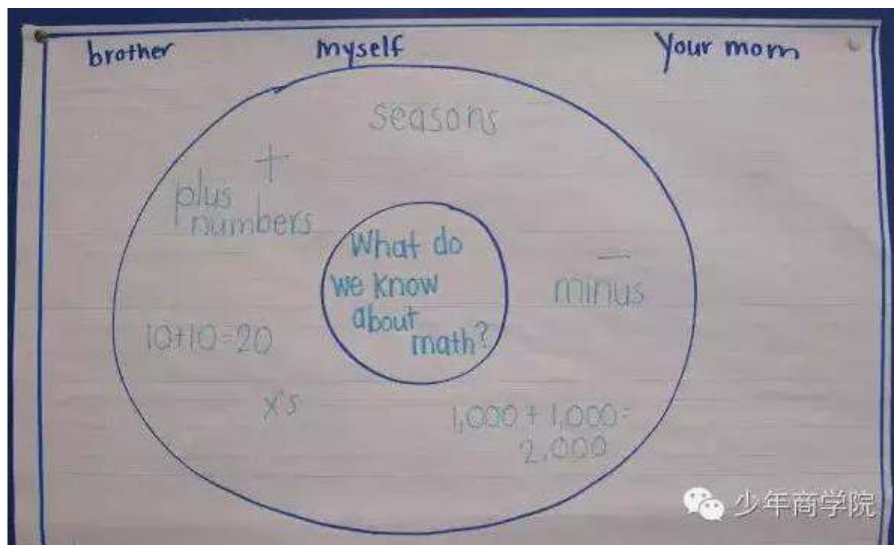 brother myself Your mom
seasons
+
plus
numbers
What do
we know
about
math?
—
minus
10+10=20
x's
1,000 + 1,000 =
2,000
少年商学院